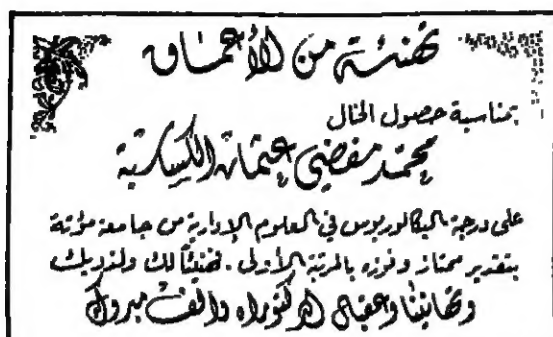 تهنئة من الأعماق
بمناسبة حصول الخال
محمد مفضي عثمان الكساسبة
على درجة البكالوريوس في العلوم الإدارية من جامعة مؤتة
بتقدير ممتاز وفوزه بالمرتبة الأولى . فهنيئاً لك ولذويك
وتهانينا وعقبال الدكتوراه والف مبروك